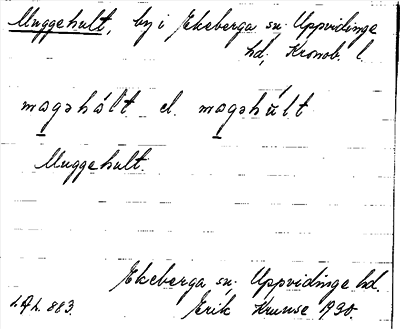 Muggehult, by i Ekeberga sn. Uppvidinge
hd, Kronob. l.
mogəhált el. mogəhúlt
Muggehult.
Ekeberga sn, Uppvidinge hd.
L.A.L. 883. Erik Kruuse 1930.